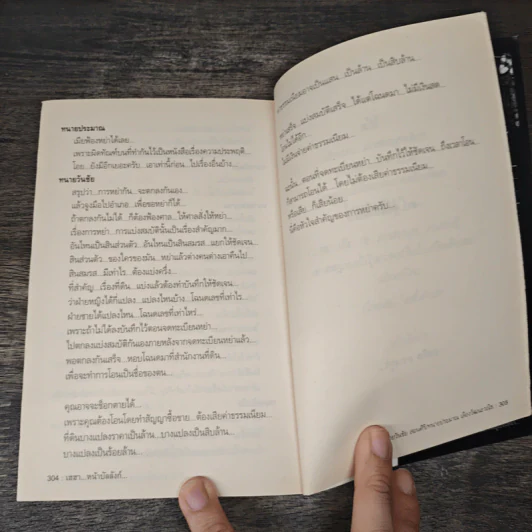 ทนายประมาณ
เมียฟ้องหย่าได้เลย...
เพราะผิดทัณฑ์บนที่ทำกันไว้เป็นหนังสือเรื่องความประพฤติ
โดย...ยังมีอีกเยอะครับ...เอาเท่านี้ก่อน...ไปเรื่องอื่นบ้าง...
ทนายวันชัย
สรุปว่า...การหย่ากัน...จะตกลงกันเอง...
แล้วจูงมือไปอำเภอ...เพื่อขอหย่าก็ได้...
ถ้าตกลงกันไม่ได้...ก็ต้องฟ้องศาล...ให้ศาลสั่งให้หย่า...
เรื่องการหย่า...การแบ่งสมบัตินั้นเป็นเรื่องสำคัญมาก...
อันไหนเป็นสินส่วนตัว...อันไหนเป็นสินสมรส...แยกให้ชัดเจน...
สินส่วนตัว...ของใครของมัน...หย่าแล้วต่างคนต่างเอาคืนไป...
สินสมรส...มีเท่าไร...ต้องแบ่งครึ่ง...
ที่สำคัญ...เรื่องที่ดิน...แบ่งแล้วต้องทำบันทึกให้ชัดเจน...
ว่าฝ่ายหญิงได้กี่แปลง...แปลงไหนบ้าง...โฉนดเลขที่เท่าไร...
ฝ่ายชายได้แปลงไหน...โฉนดเลขที่เท่าไหร่...
เพราะถ้าไม่ได้ลงบันทึกไว้ตอนจดทะเบียนหย่า...
ไปตกลงแบ่งสมบัติกันเองภายหลังจากจดทะเบียนหย่าแล้ว...
พอตกลงกันเสร็จ...หอบโฉนดมาที่สำนักงานที่ดิน...
เพื่อจะทำการโอนเป็นชื่อของตน...
คุณอาจจะช็อกตายได้...
เพราะคุณต้องโอนโดยทำสัญญาซื้อขาย...ต้องเสียค่าธรรมเนียม...
ที่ดินบางแปลงราคาเป็นล้าน...บางแปลงเป็นสิบล้าน...
บางแปลงเป็นร้อยล้าน...
304 : เฮฮา...หน้าบัลลังก์...
ธรรมเนียมอาจเป็นแสน...เป็นล้าน...เป็นสิบล้าน...
หย่าเสร็จ...แบ่งสมบัติเสร็จ...ได้แต่โฉนดมา...ไม่มีเงินสด
โอนไม่ได้อีก...
ไม่มีเงินจ่ายค่าธรรมเนียม...
ฉะนั้น...ตอนที่จดทะเบียนหย่า...บันทึกไว้ให้ชัดเจน...ถึงเวลาโอน...
ก็สามารถโอนได้...โดยไม่ต้องเสียค่าธรรมเนียม...
หรือเสีย...ก็เสียน้อย...
นี่คือหัวใจสำคัญของการหย่าครับ...
305